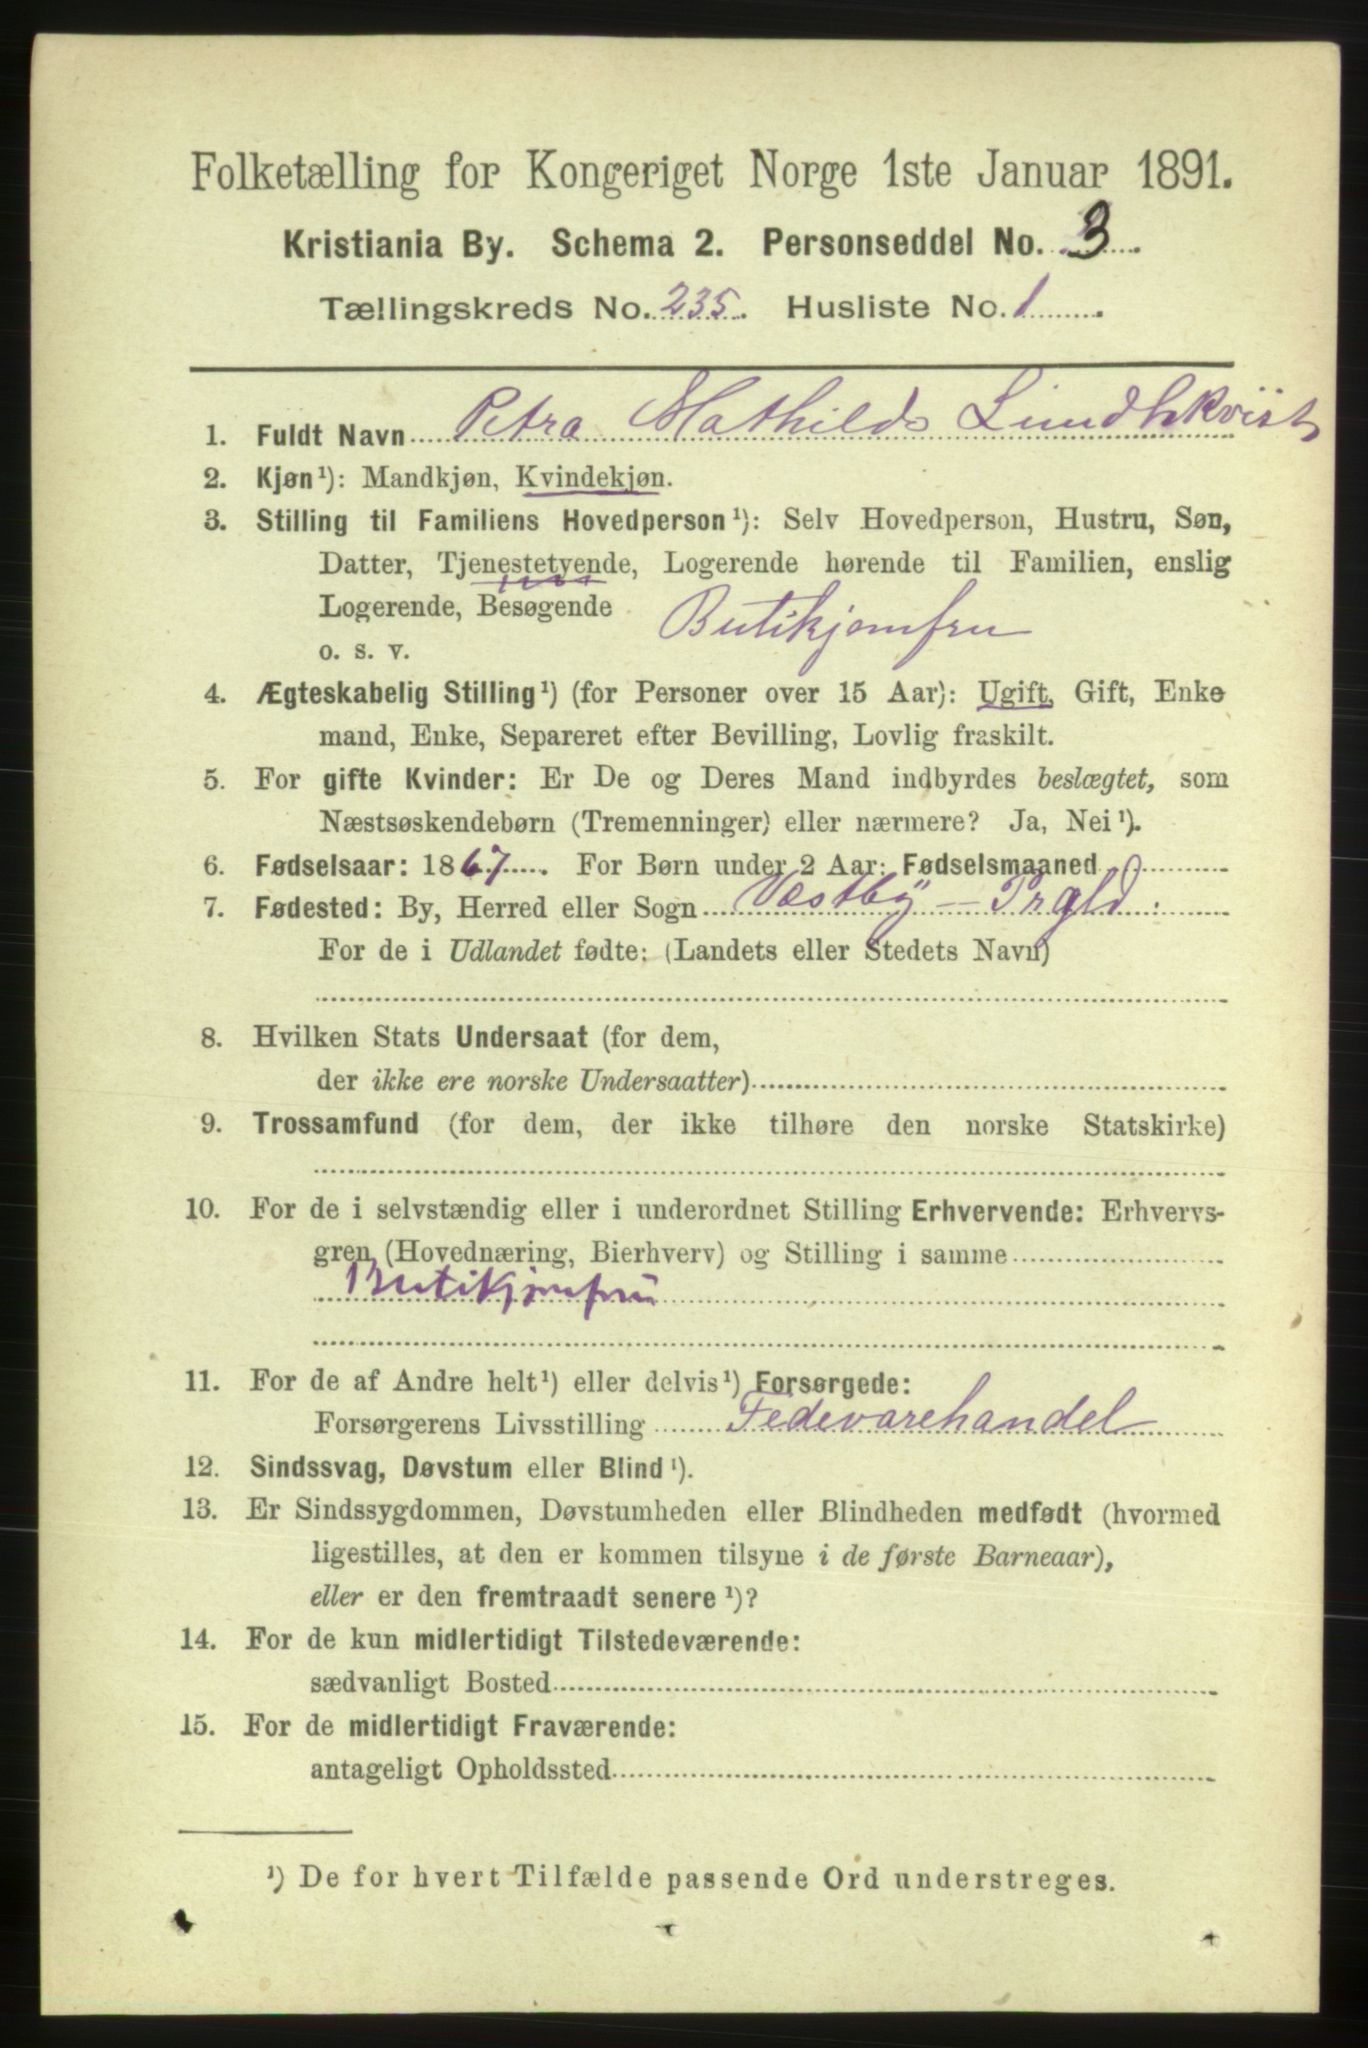 Folketælling for Kongeriget Norge 1ste Januar 1891.
Kristiania By. Schema 2. Personseddel No. 3
Tællingskreds No. 235. Husliste No. 1
1. Fuldt Navn Petra Mathilde Lundhkvist
2. Kjøn¹): Mandkjøn, Kvindekjøn.
3. Stilling til Familiens Hovedperson¹): Selv Hovedperson, Hustru, Søn,
Datter, Tjenestetyende, Logerende hørende til Familien, enslig
Logerende, Besøgende Butikjomfru
o. s. v.
4. Ægteskabelig Stilling¹) (for Personer over 15 Aar): Ugift, Gift, Enke
mand, Enke, Separeret efter Bevilling, Lovlig fraskilt.
5. For gifte Kvinder: Er De og Deres Mand indbyrdes beslægtet, som
Næstsøskendebørn (Tremenninger) eller nærmere? Ja, Nei¹).
6. Fødselsaar: 1867. For Børn under 2 Aar: Fødselsmaaned
7. Fødested: By, Herred eller Sogn Vestby — Prgld.
For de i Udlandet fødte: (Landets eller Stedets Navn)
8. Hvilken Stats Undersaat (for dem,
der ikke ere norske Undersaatter)
9. Trossamfund (for dem, der ikke tilhøre den norske Statskirke)
10. For de i selvstændig eller i underordnet Stilling Erhvervende: Erhvervs-
gren (Hovednæring, Bierhverv) og Stilling i samme
Butikjomfru
11. For de af Andre helt¹) eller delvis¹) Forsørgede:
Forsørgerens Livsstilling Fedevarehandel
12. Sindssvag, Døvstum eller Blind¹).
13. Er Sindssygdommen, Døvstumheden eller Blindheden medfødt (hvormed
ligestilles, at den er kommen tilsyne i de første Barneaar),
eller er den fremtraadt senere¹)?
14. For de kun midlertidigt Tilstedeværende:
sædvanligt Bosted
15. For de midlertidigt Fraværende:
antageligt Opholdssted
¹) De for hvert Tilfælde passende Ord understreges.